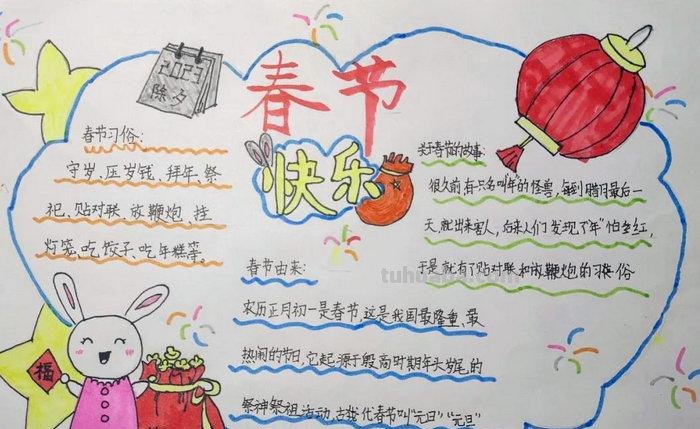 2023
除夕
春节
快乐
春节习俗:
守岁、压岁钱、拜年、祭
祀、贴对联、放鞭炮、挂
灯笼、吃饺子、吃年糕等。
关于春节的故事:
很久前有一只名叫"年"的怪兽,每到腊月最后一
天,就出来害人,后来人们发现了"年"怕红,
于是就有了贴对联和放鞭炮的习俗
tuhua
春节由来:
农历正月初一是春节,这是我国最隆重、最
热闹的节日,它起源于殷商时期年头岁尾的
祭神祭祖活动,古代春节叫"元日""元旦"
福